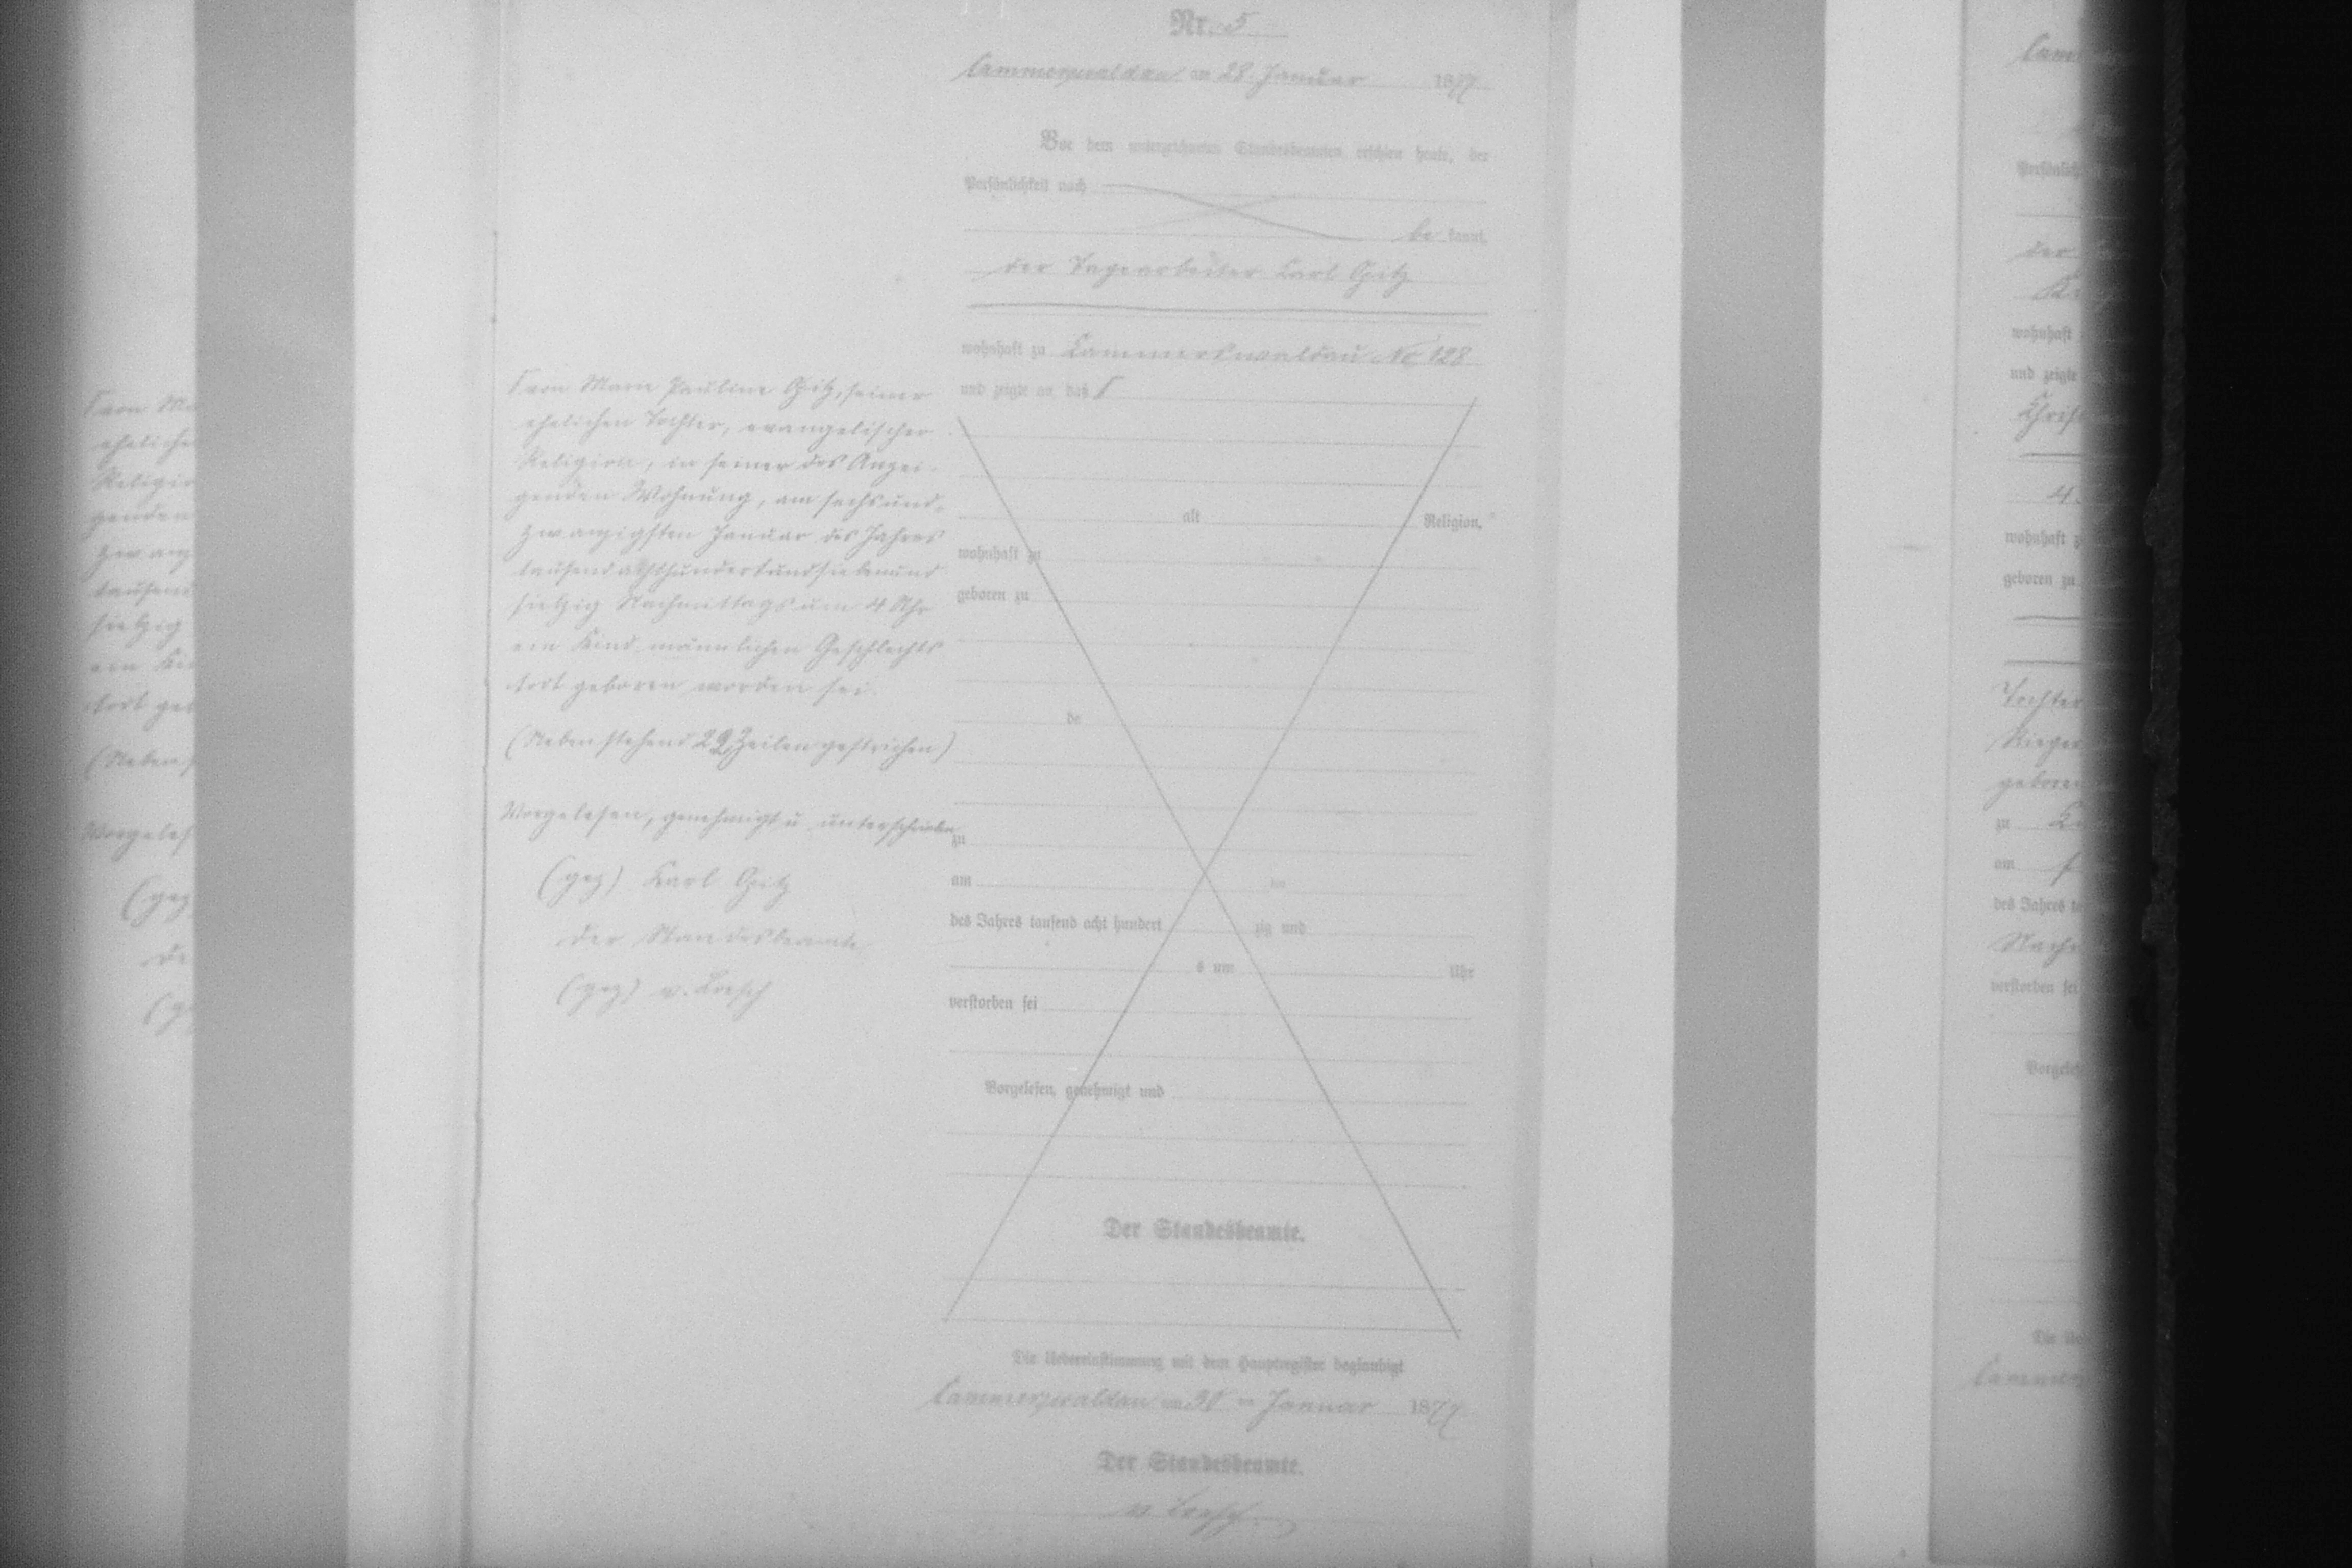 Nr. 5
Cammerswaldau am 28. Januar 1877
Vor dem unterzeichneten Standesbeamten erschien heute, der
Persönlichkeit nach
be kannt,
der Tagearbeiter Carl Opitz
wohnhaft zu Cammerswaldau No 128
und zeigte an, daß Γ
Γ von Marie Pauline Opitz, seiner
ehelichen Tochter, evangelischer
Religion, in seiner des Anzei-
genden Wohnung, am sechsund-
zwanzigsten Januar des Jahres
tausendachthundertundsiebenund
siebzig Nachmittags um 4 Uhr
ein Kind männlichen Geschlechts
todt geboren worden sei.
(Nebenstehend 29 Zeilen gestrichen)
Vorgelesen, genehmigt u unterschrieben
(gez) Karl Opitz
Der Standesbeamte
(gez) v. Loesch
alt Religion,
wohnhaft zu
geboren zu
de
zu
am
des Jahres tausend acht hundert zig und
s um Uhr
verstorben sei
Vorgelesen, genehmigt und
Der Standesbeamte.
Die Uebereinstimmung mit dem Hauptregister beglaubigt
Cammerswaldau am 30 ten Januar 1877
Der Standesbeamte.
v. Loesch
wohnhaft
und zeigte
wohnhaft z
geboren zu
Tochter
zu
am
des Jahres t
verstorben sei
Vorgeles